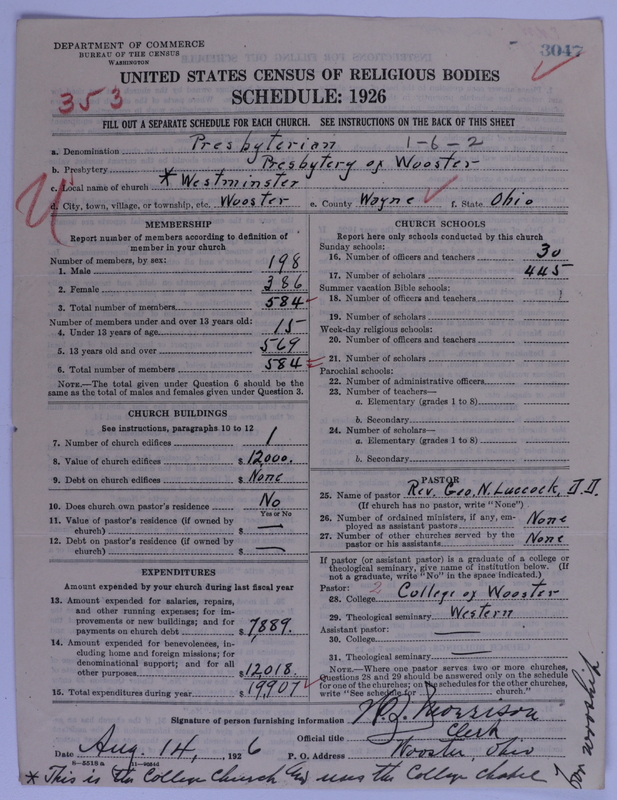 DEPARTMENT OF COMMERCE
BUREAU OF THE CENSUS
WASHINGTON
3047
UNITED STATES CENSUS OF RELIGIOUS BODIES
353
SCHEDULE: 1926
FILL OUT A SEPARATE SCHEDULE FOR EACH CHURCH. SEE INSTRUCTIONS ON THE BACK OF THIS SHEET
a. Denomination Presbyterian 1-6-2
b. Presbytery Presbytery of Wooster
c. Local name of church *Westminster
d. City, town, village, or township, etc. Wooster e. County Wayne f. State Ohio
MEMBERSHIP
Report number of members according to definition of
member in your church
Number of members, by sex:
1. Male 198
2. Female 386
3. Total number of members 584
Number of members under and over 13 years old:
4. Under 13 years of age 15
5. 13 years old and over 569
6. Total number of members 584
NOTE.—The total given under Question 6 should be the
same as the total of males and females given under Question 3.
CHURCH BUILDINGS
See instructions, paragraphs 10 to 12
7. Number of church edifices 1
8. Value of church edifices $ 12,000.
9. Debt on church edifices $ None
10. Does church own pastor's residence No
Yes or No
11. Value of pastor's residence (if owned by
church) $ —
12. Debt on pastor's residence (if owned by
church) $ —
EXPENDITURES
Amount expended by your church during last fiscal year
13. Amount expended for salaries, repairs,
and other running expenses; for im-
provements or new buildings; and for
payments on church debt $ 7,889.
14. Amount expended for benevolences, in-
cluding home and foreign missions; for
denominational support; and for all
other purposes $ 12,018.
15. Total expenditures during year $ 19,907
CHURCH SCHOOLS
Report here only schools conducted by this church
Sunday schools:
16. Number of officers and teachers 30
17. Number of scholars 445
Summer vacation Bible schools:
18. Number of officers and teachers
19. Number of scholars
Week-day religious schools:
20. Number of officers and teachers
21. Number of scholars
Parochial schools:
22. Number of administrative officers
23. Number of teachers—
a. Elementary (grades 1 to 8)
b. Secondary
24. Number of scholars—
a. Elementary (grades 1 to 8)
b. Secondary
PASTOR
25. Name of pastor Rev. Geo. N. Luccock, D.D.
(If church has no pastor, write "None")
26. Number of ordained ministers, if any, em-
ployed as assistant pastors None
27. Number of other churches served by the
pastor or his assistants None
If pastor (or assistant pastor) is a graduate of a college or
theological seminary, give name of institution below. (If
not a graduate, write "No" in the space indicated.)
Pastor:
28. College 2 College of Wooster
29. Theological seminary Western
Assistant pastor:
30. College —
31. Theological seminary —
NOTE.—Where one pastor serves two or more churches,
Questions 28 and 29 should be answered only on the schedule
for one of the churches; on the schedules for the other churches,
write "See schedule for church."
Signature of person furnishing information Morrison
Official title Clerk
Date Aug. 14, 1926 P. O. Address Wooster, Ohio
8-5518a
* This is the College Church and uses the College chapel
for worship